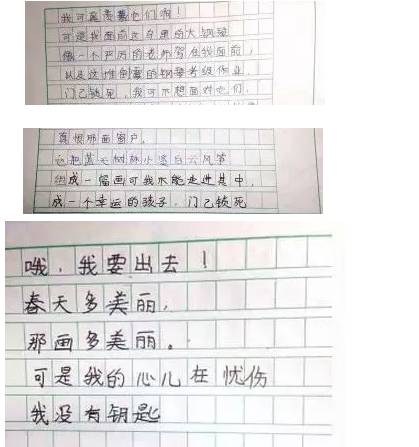 我可真羡慕他们啊！
可是我面前这台黑的大钢琴
像一个严厉的老师驾在我面前，
以及这堆倒霉的钢琴考级作业，
门已锁死，我可不想面对它们，
真恨那面窗户，
它把蓝天树林小鸟白云风筝
组成一幅画可我不能走进其中，
成一个幸运的孩子，门已锁死
哦，我要出去！
春天多美丽，
那画多美丽。
可是我的心儿在忧伤
我没有钥匙